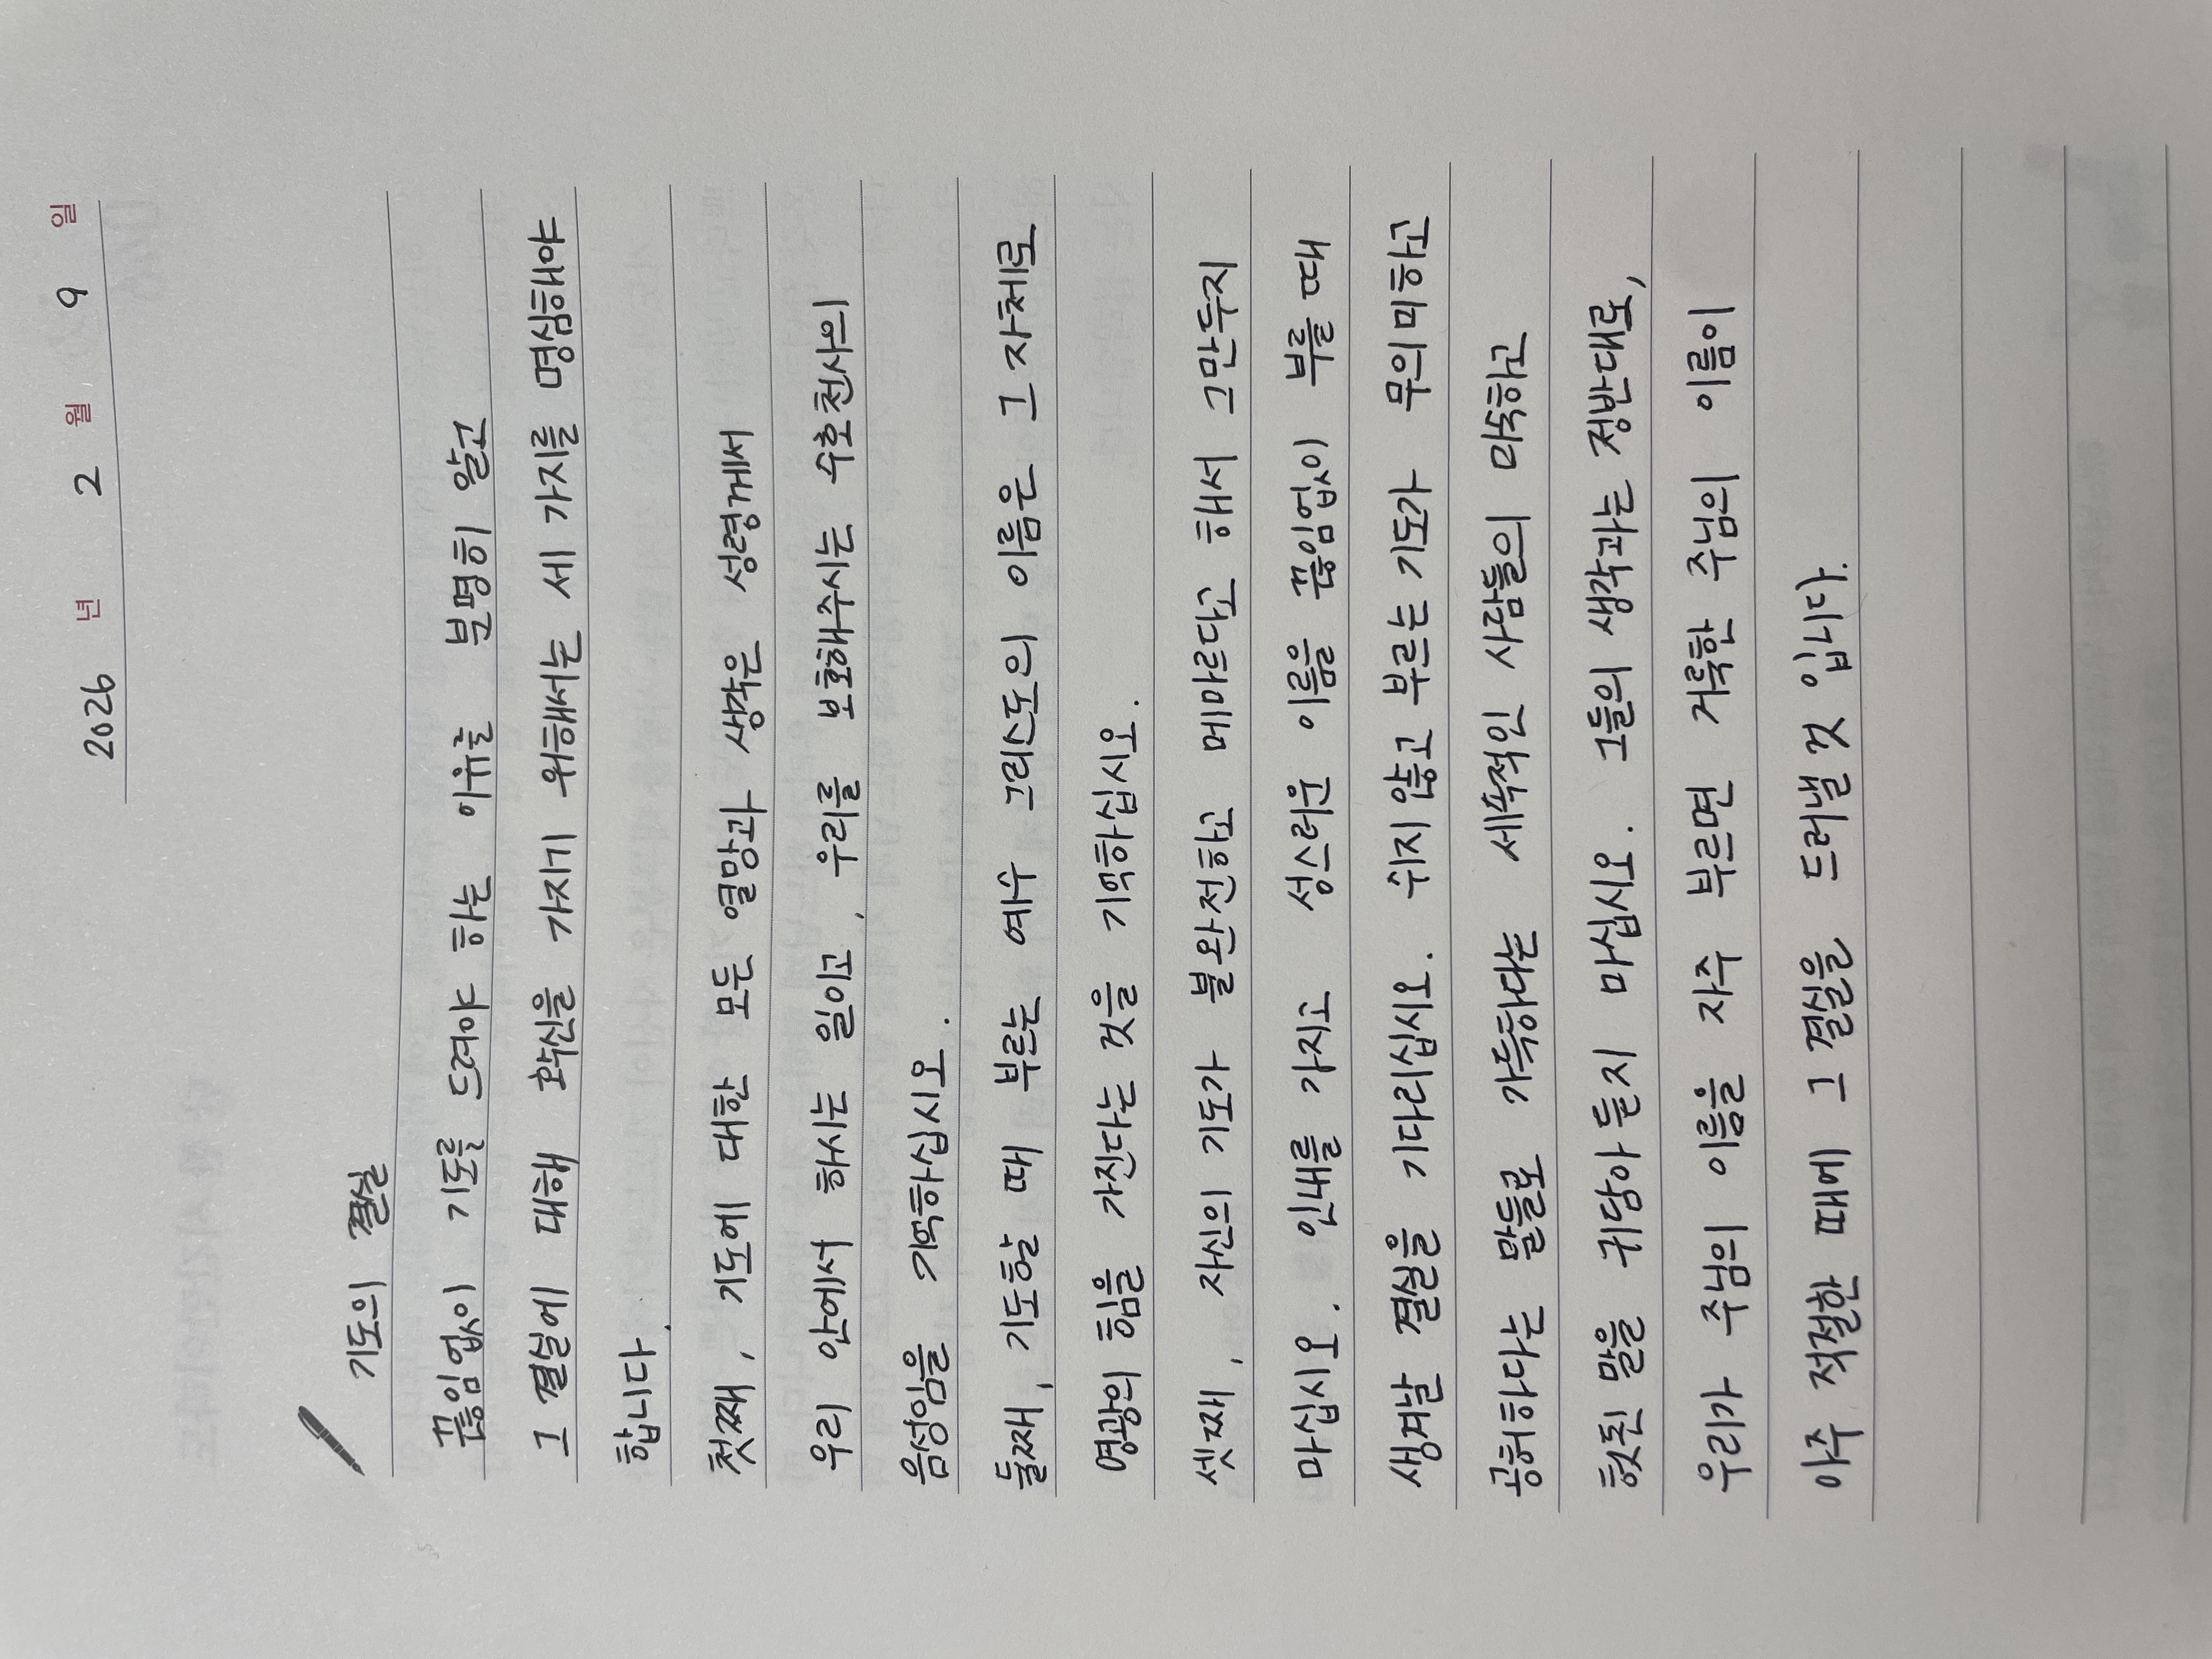 2026 년 2 월 9 일
기도의 결실
끊임없이 기도를 드려야 하는 이유를 분명히 알고
그 결실에 대해 확신을 가지기 위해서는 세 가지를 명심해야
합니다.
첫째, 기도에 대한 모든 열망과 생각은 성령께서
우리 안에서 하시는 일이고, 우리를 보호해주시는 수호천사의
음성임을 기억하십시오.
둘째, 기도할 때 부르는 예수 그리스도의 이름은 그 자체로
영광의 힘을 가진다는 것을 기억하십시오.
셋째, 자신의 기도가 불완전하고 메마르다고 해서 그만두지
마십시오. 인내를 가지고 성스러운 이름을 끊임없이 부를 때
생겨날 결실을 기다리십시오. 쉬지 않고 부르는 기도가 무의미하고
공허하다는 말들로 가득하다는 세속적인 사람들의 미숙하고
헛된 말을 귀담아 듣지 마십시오. 그들의 생각과는 정반대로,
우리가 주님의 이름을 자주 부르면 거룩한 주님의 이름이
아주 적절한 때에 그 결실을 드러낼 것 입니다.